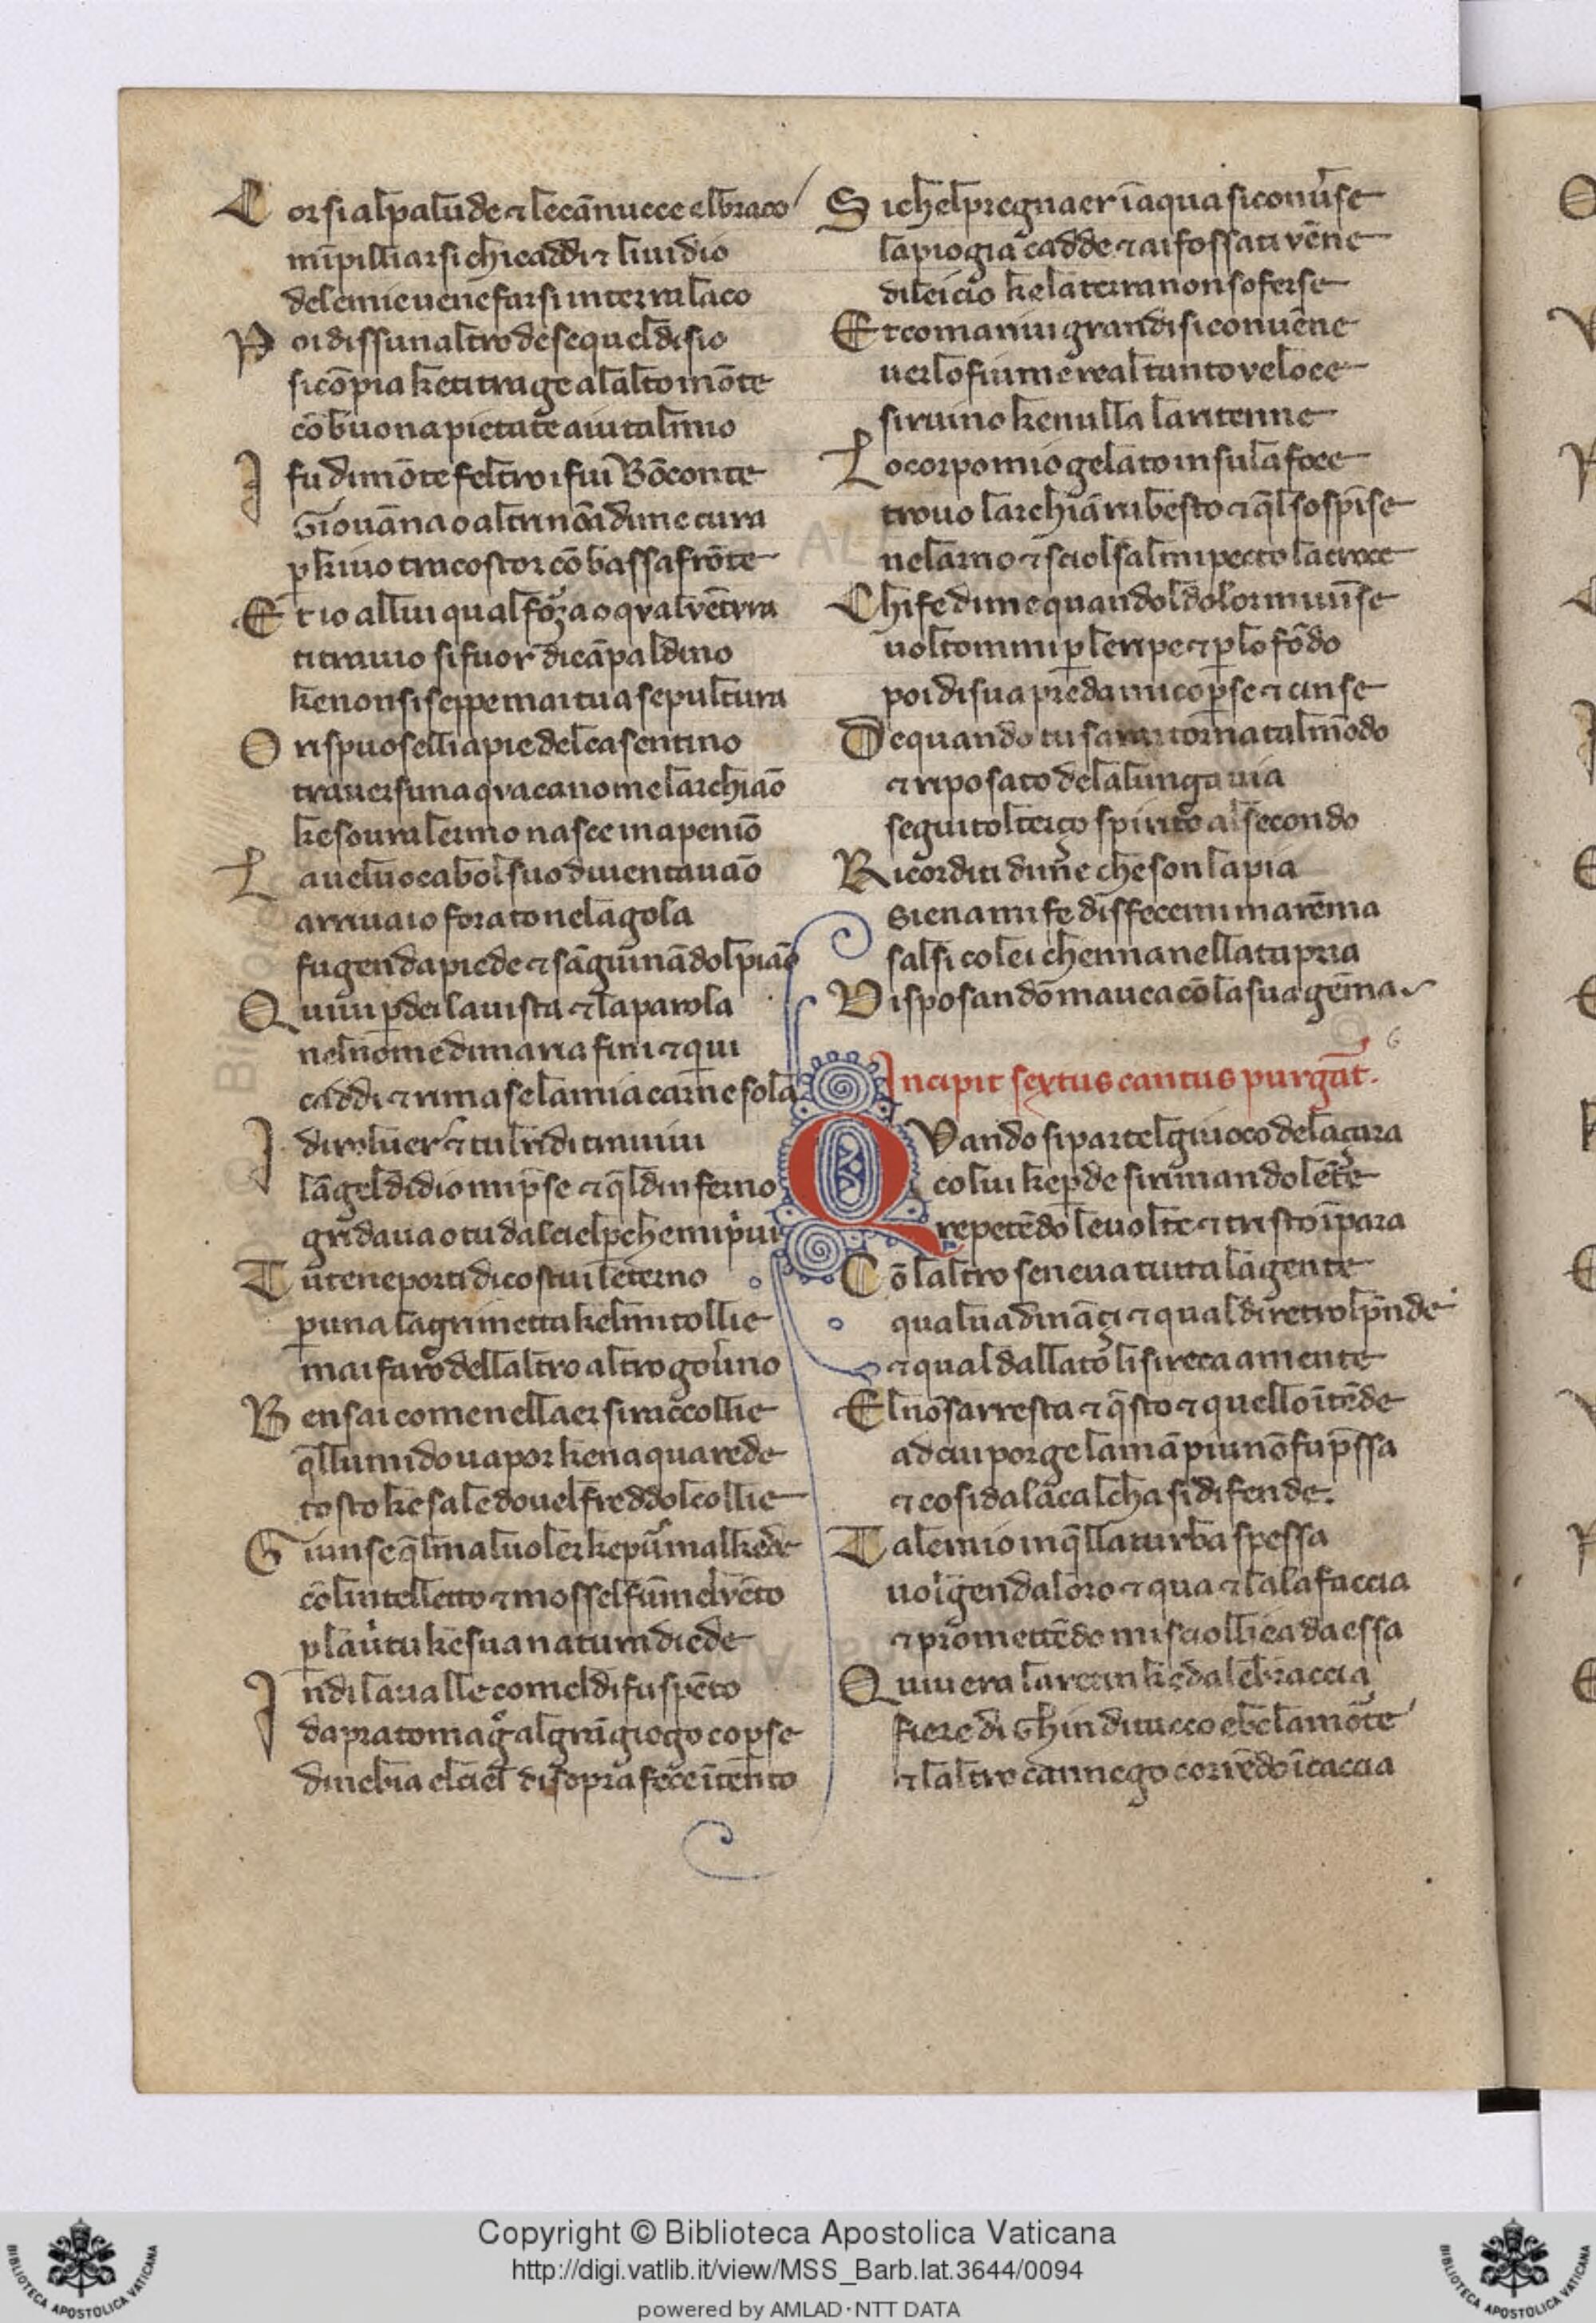 C orsi alpalude ⁊ lecānucce elbraco
mīpilliarsi chicaddi ⁊ liuidio
delemieuene farsi interra laco
P oi dissunaltro de sequeldisio
sicōpia ketitrage alaltomōte
cōbuona pietate aiutalmio
I fu dimōtefeltro i fui Bōconte
Giouāna o altri nōā dime cura
p kiuo tracostor cō bassa frōte
E t io allui qual forza o qval vētvra
titrauio si fuor dicāpaldino
kenonsiseppe mai tua sepultura
O rispuoselli apie del casentino
trauersunaqvacanome larchiāo
kesoura lermo nasce inapeniō
L aueluocabol suo diuentauāo
arriuaio forato nelagola
fugendapiede ⁊ sāguināndolpiāo
Q uiui pdei lauista ⁊ laparola
nelnome dimaria fini ⁊ qui
caddi ⁊ rimase lamia carne sola
I diroluer ⁊ tulridi traiuiui
lāgeldidio miprse ⁊ qldinferno
gridaua o tu dalcielpchemipriui
T unteneporti dicostui leterno
puna lagrimetta kelmitollie
maifaro dellaltro altro gouerno
B ensai comenellaer siraccollie
qllumido uapor kenaquarede
tosto kesale douelfreddolcollie
G iunseqlmaluoler kepurmalkede
cōlintelletto ⁊ mosselfummelvēto
plauirtu kesuanatura diede
I ndi laualle comeldi fuspēto
dapratomag algrāgiogo copse
dinebia elciel disopra feceītento
S ichelpregnaer īaqua siconuerse
lapiogia cadde ⁊ aifossati vēne
dileicio kelaterranonsoferse
Et coma riui grandi siconuēne
uerlofiume real tanto veloce
siruino kenulla laritenne
L ocorpo mio gelato insulafoce
trouo larchiā rubesto ⁊ ql sospīse
nelarno ⁊ sciolsalmi pecto lacroce
Chife dime quandoldolormiuīse
uoltommi pleripe ⁊ plo fōdo
poi disua preda mi copse ⁊ cinse
De quando tu sarai tornatalmōdo
⁊ riposato delalunga uia
seguitolterço spirito alsecondo
Ricorditi dime che son lapia
siena mi fe disfecemi marēma
salsi colei chennanellata pria
Disposandō mauea cōlasua gēma
6
Incipit sextus cantus purgat.
Quando siparte lgiuoco delaçara
colui kepde sirimandolēte
repetēdo leuolte ⁊ tristo īpara
Cō laltro seneua tutta lagente
qualuadināçi ⁊ qualdiretrolprinde
⁊ qual dallato lisireca amente
El nōsarresta ⁊ qsto ⁊ quelloītēde
adcui porge lamā piunōfupssa
⁊ cosi dalacalcha sidifende.
T alemio inqlla turba spessa
uolgendaloro ⁊ qua ⁊ lalafaccia
⁊ promettēdo misciolliea daessa
Q uiuera laretin kedalebraccia
fiere di Ghin ditacco ebelamorte
⁊ laltro cannego corrēdo īcaccia
Copyright © Biblioteca Apostolica Vaticana
http://digi.vatlib.it/view/MSS_Barb.lat.3644/0094
powered by AMLAD·NTT DATA
BIBLIOTECA APOSTOLICA VATICANA
BIBLIOTECA APOSTOLICA VATICANA